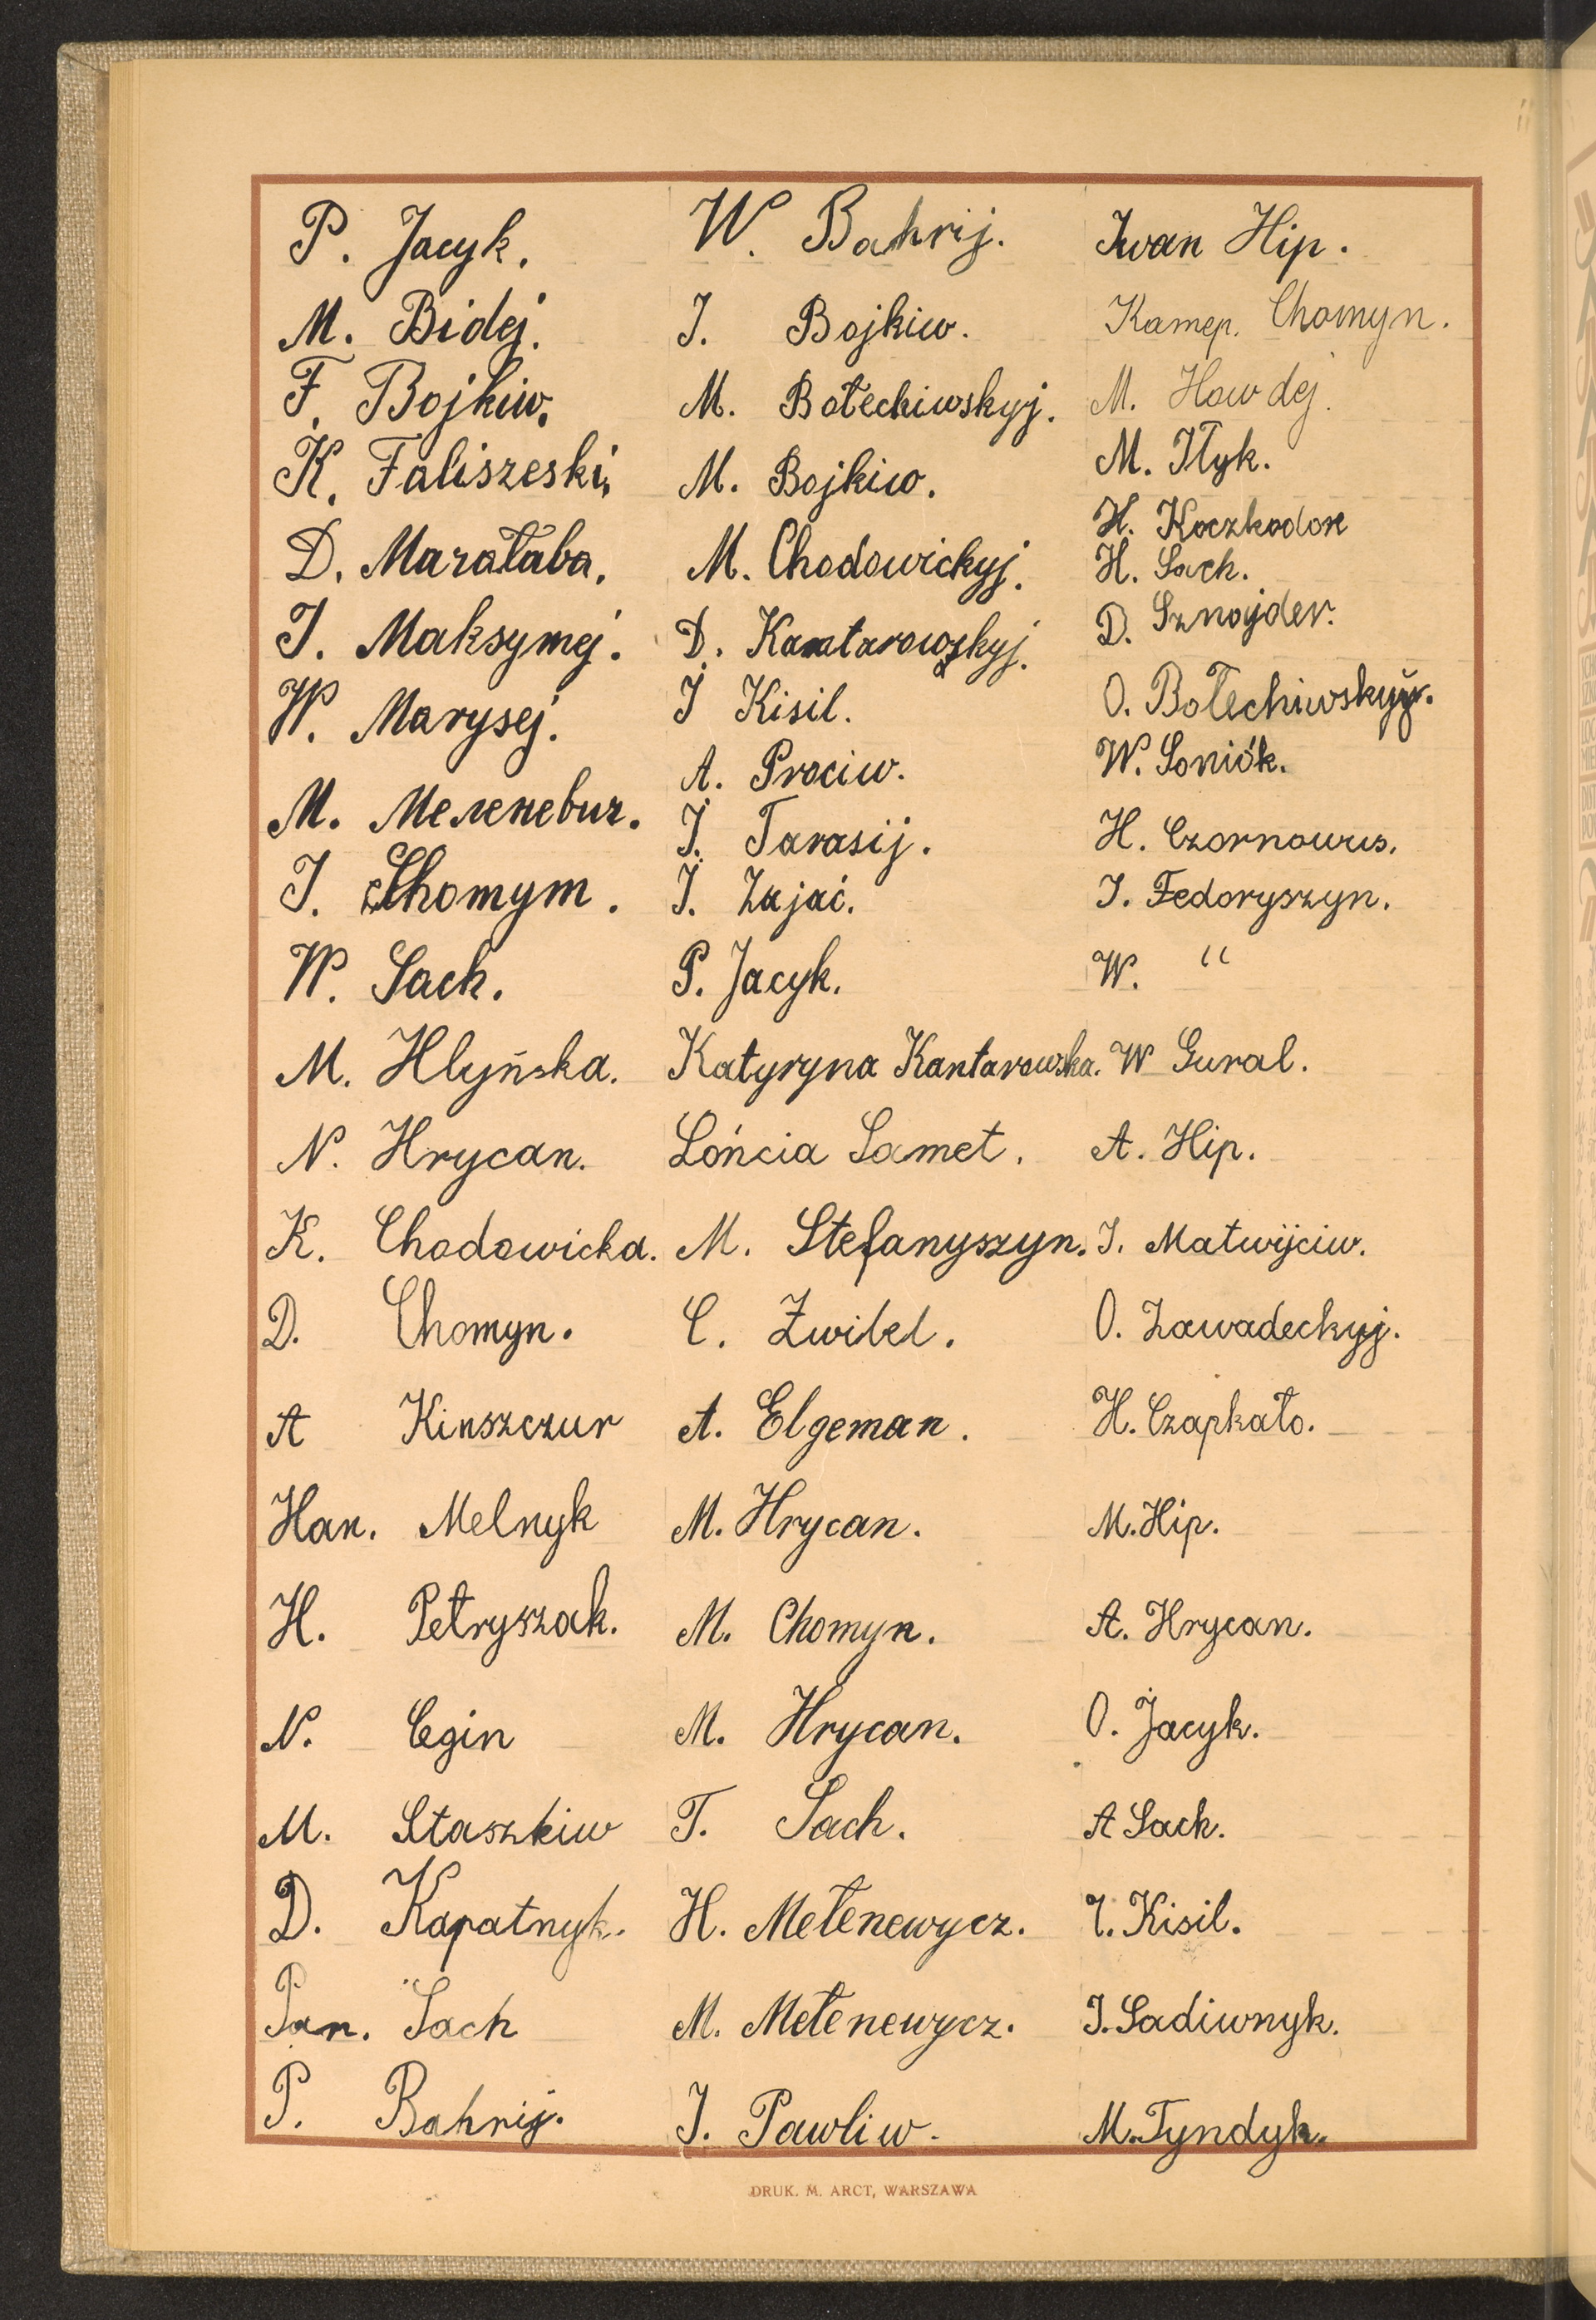 P. Jacyk.
M. Bidej.
F. Bojkiw.
K. Faliszeski.
D. Marałaba.
J. Maksymej.
W. Marysej.
M. Меленевич.
J. Chomym.
W. Sach.
M. Hlyńska.
N. Hrycan.
K. Chodowicka.
D. Chomyn.
A Kinszczur
Han. Melnyk
H. Petryszak.
N. Cegin
M. Staszkiw
D. Kapatnyk.
Pan. Sach
P. Bahrij.
W. Bahrij.
J. Bojkiw.
M. Bołechiwskyj.
M. Bojkiw.
M. Chodowickyj.
D. Kantarowskyj.
J Kisil.
A. Prociw.
J. Tarasij.
J. Zajać.
P. Jacyk.
Katyryna Kantarowska.
Lońcia Samet.
M. Stefanyszyn.
C. Zwibel.
A. Elgeman.
M. Hrycan.
M. Chomyn.
M. Hrycan.
T. Sach.
H. Mełenewycz.
M. Mełenewycz.
J. Pawliw.
Iwan Hip.
Kamep. Chomyn.
M. Hawdej.
M. Iłyk.
H. Koczkodon
H. Sach.
D. Sznajder.
O. Bołechiwskyj.
W. Soniók.
H. Czornowus.
J. Fedoryszyn.
W. "
W Gural.
A. Hip.
J. Matwijciw.
O. Zawadeckyj.
H. Czapkało.
M. Hip.
A. Hrycan.
O. Jacyk.
A Sach.
J. Kisil.
J. Sadiwnyk.
M. Tyndyk.
DRUK. M. ARCT, WARSZAWA